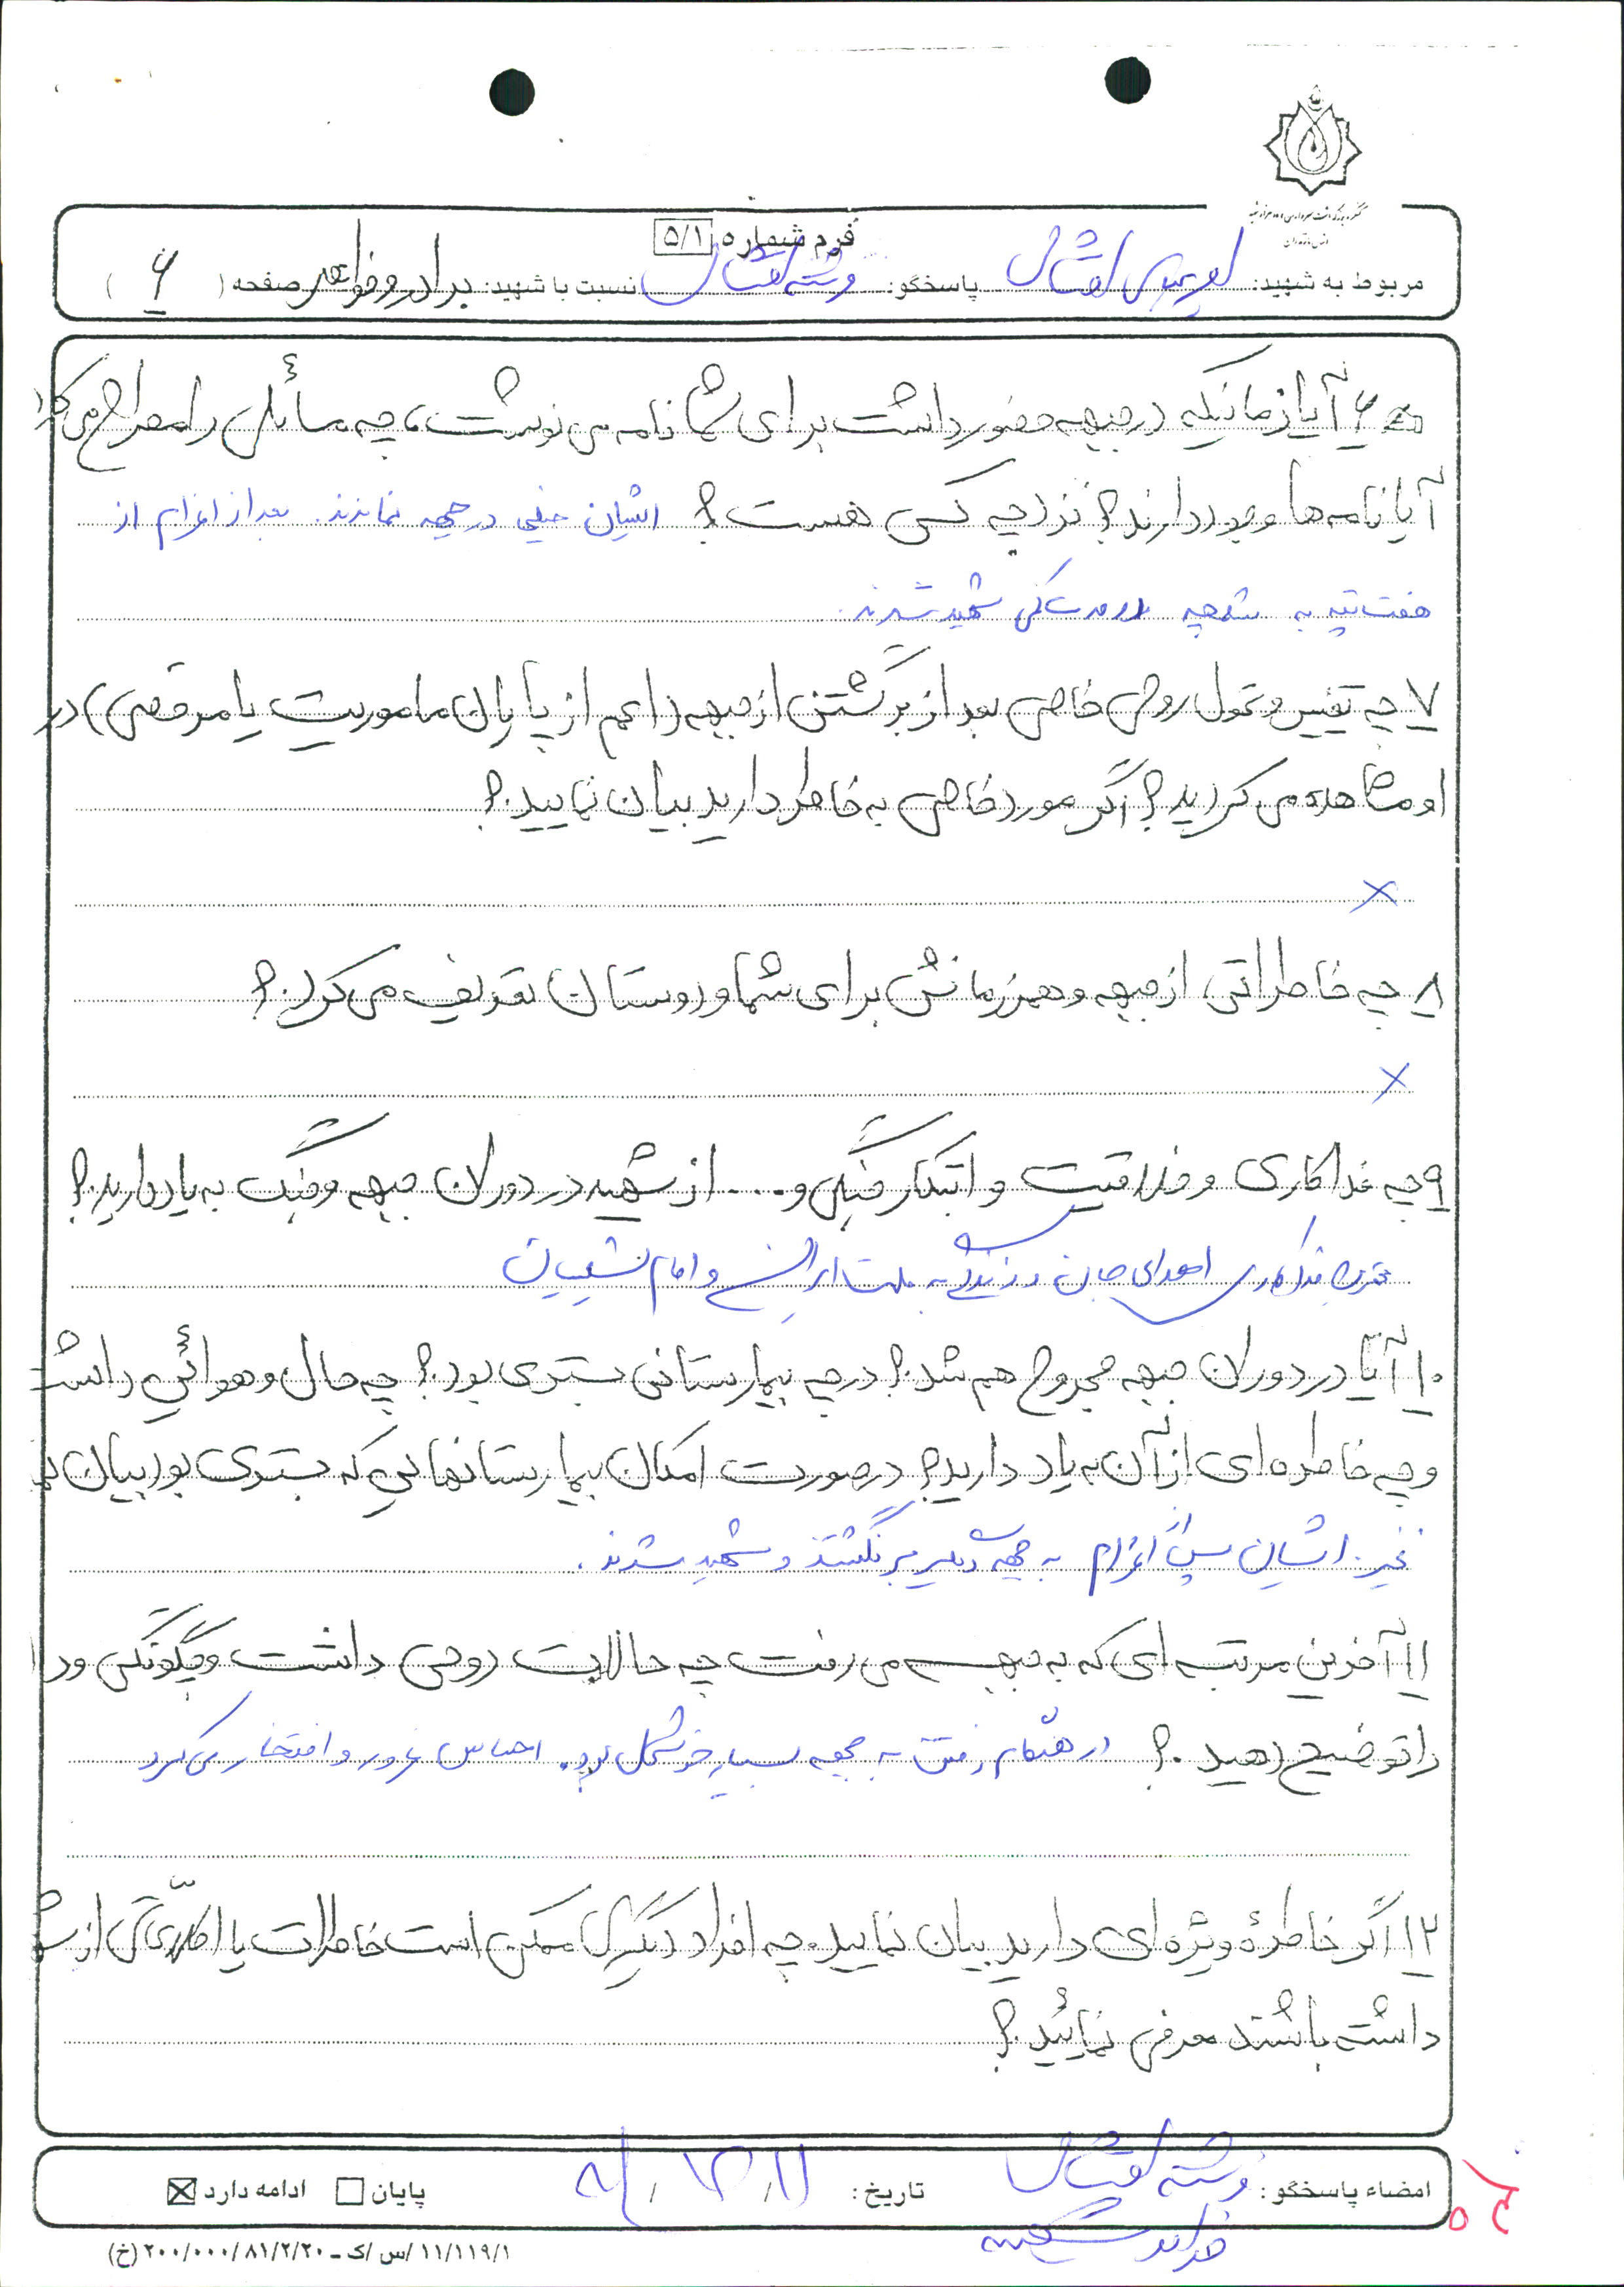 فرم شماره ۵/۱
مربوط به شهید: پاسخگو: فرشته نسبت با شهید: برادر و خواهر صفحه ( ۶ )
۶ آیا زمانیکه در جبهه حضور داشت برای شما نامه می نوشت، چه مسائلی را مطرح می کرد
آیا نامه ها وجود دارند؟ نزد چه کسی هست؟ ایشان خیلی در جبهه نماندند. بعد از اعزام از
هفت تپه به شهید شدند.
۷ چه تغییر و تحول روحی خاصی بعد از برگشتن از جبهه (اعم از پایان ماموریت یا مرخصی) در
او مشاهده می کردید؟ اگر مورد خاصی به خاطر دارید بیان نمایید.؟
×
۸ چه خاطراتی از جبهه و همرزمانش برای شما و دوستان تعریف می کرد.؟
×
۹ چه فداکاری و خلاقیت و ابتکار جنگی و.... از شهید در دوران جبهه و جنگ به یاد دارید.؟
فداکاری اهدای جان و زندگی به ملت ایران و امام
۱۰ آیا در دوران جبهه مجروح هم شد.؟ در چه بیمارستانی بستری بود.؟ چه حال و هوائی داشت
و چه خاطره ای از آن به یاد دارید؟ در صورت امکان بیمارستانهایی که بستری بود بیان
خیر. ایشان پس از اعزام به جبهه دیگر برنگشتند و شهید شدند.
۱۱ آخرین مرتبه ای که به جبهه می رفت چه حالات روحی داشت و چگونگی
را توضیح دهید.؟ در هنگام رفتن به جبهه بسیار خوشحال بود. احساس غرور و افتخار می کرد
۱۲ اگر خاطرۀ ویژه ای دارید بیان نمایید. چه افراد دیگری ممکن است خاطرات یا اطلاعاتی از
داشته باشند معرفی نمائید.؟
امضاء پاسخگو: فرشته تاریخ: پایان ادامه دارد
۱۱/۱۱۹/۱ /س /ک – ۲۰۰/۰۰۰/۸۱/۲/۲۰ (خ)